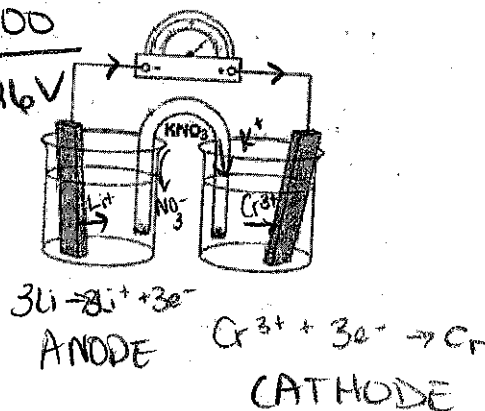 00
16V
- +
KNO₃
K⁺
Li⁺
NO₃⁻
Cr³⁺
3Li → 3Li⁺ + 3e⁻
ANODE
Cr³⁺ + 3e⁻ → Cr
CATHODE